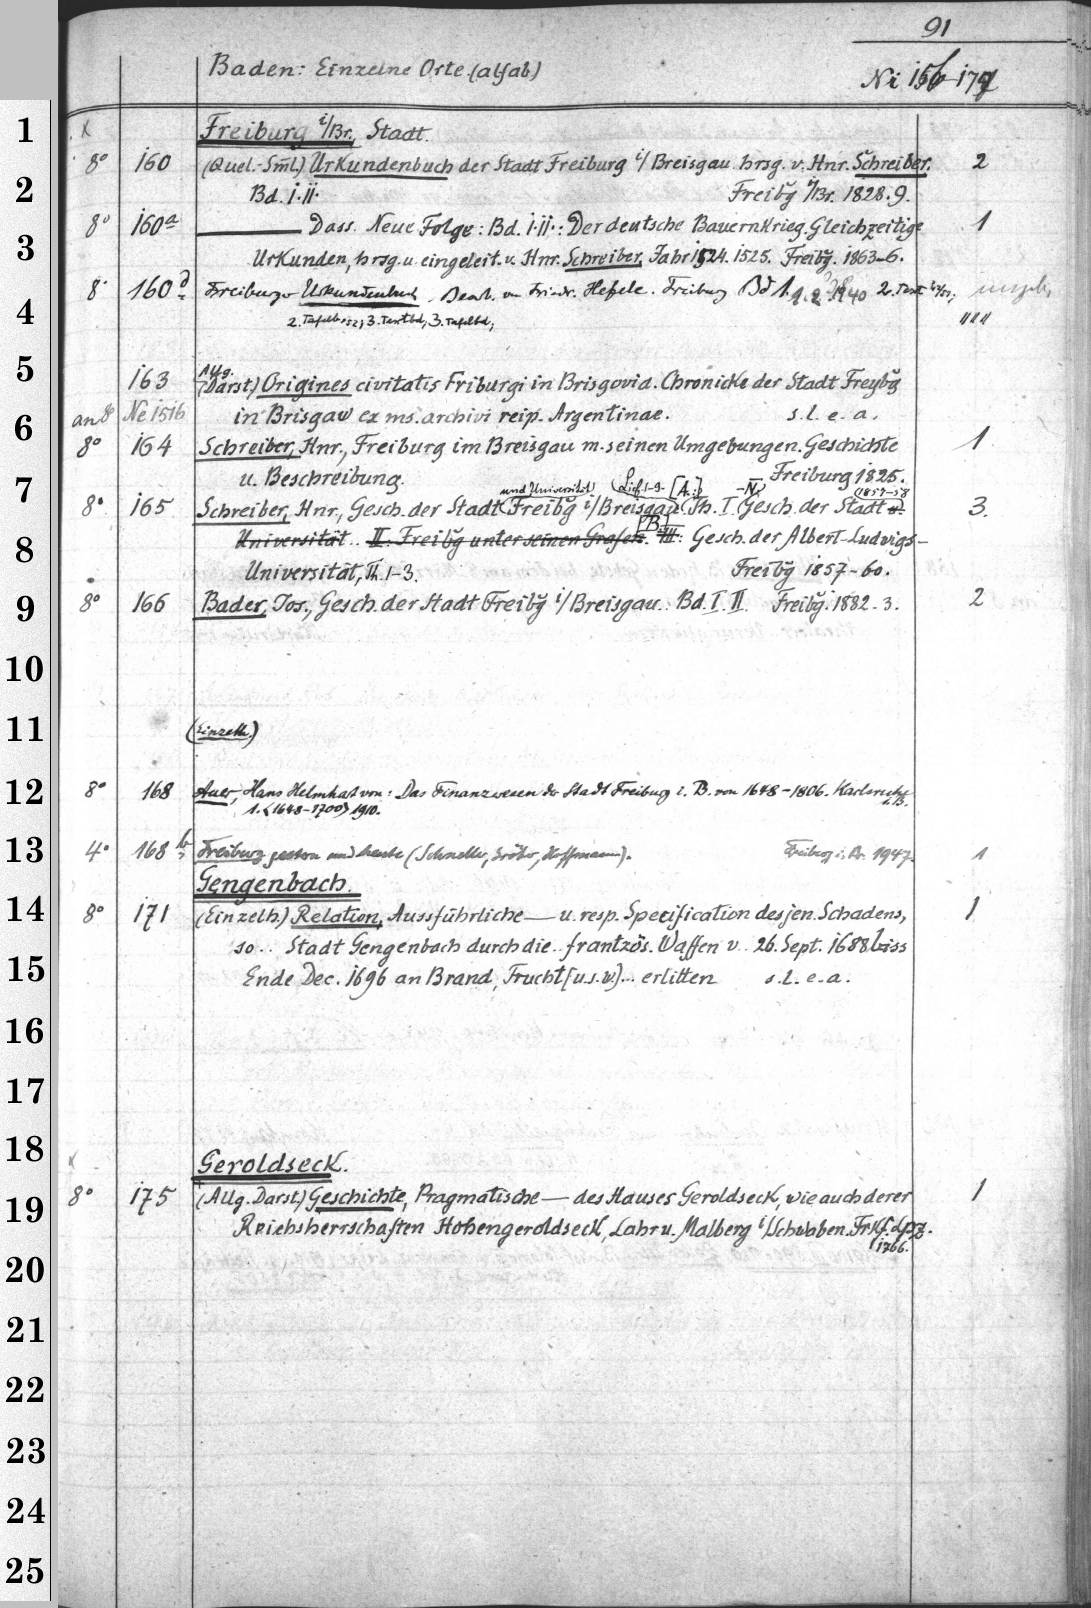 91
Baden: Einzelne Orte (alfab)
Ni 156-179
1
x
Freiburg i/Br., Stadt.
8° 160 (Quel.-Sml.) Urkundenbuch der Stadt Freiburg i/Breisgau hrsg. v. Hnr. Schreiber. 2
2
Bd. I.II. Freibg i/Br. 1828.9.
8° 160a ——— Dass. Neue Folge: Bd. I.II.: Der deutsche Bauernkrieg. Gleichzeitige 1
3
Urkunden, hrsg. u. eingeleit. v. Hnr. Schreiber. Jahr 1524. 1525. Freibg. 1863-6.
8° 160d Freiburger Urkundenbuch. Bearb. von Friedr. Hefele. Freiburg Bd 1. 1940 2. Text
4
2. Tafelb. 3. Textbd, 3. Tafelbd;
5
Allg.
163 (Darst) Origines civitatis Friburgi in Brisgovia. Chronicke der Stadt Freybg
6
an 8° Ne 1516 in Brisgaw ex ms. archivi reip. Argentinae. s. l. e. a.
8° 164 Schreiber, Hnr., Freiburg im Breisgau m. seinen Umgebungen. Geschichte 1
7
u. Beschreibung. Freiburg 1825.
und Universität (Lief. 1-9. [A.:] -N. (1857-58
8° 165 Schreiber, Hnr., Gesch. der Stadt Freibg i/Breisgau Th. I (Gesch. der Stadt u. 3.
8
[B.]
Universität.. II: Freibg unter seinen Grafen. III: Gesch. der Albert-Ludwigs-
Universität, Th. 1-3. Freibg 1857-60.
9
8° 166 Bader, Jos., Gesch. der Stadt Freibg i/Breisgau. Bd. I. II Freibg. 1882-3. 2
10
11
(Einzelh.)
12
8° 168 Auer, Hans Helmhart von: Das Finanzwesen der Stadt Freiburg i. B. von 1648-1806. Karlsruhe
1. <1648-1700> 1910. i. B.
13
4° 168b Freiburg gestern und heute (Schnelle, Gröber, Hoffmann). Freiburg i. Br. 1947. 1
Gengenbach.
14
8° 171 (Einzelh.) Relation, Aussführliche — u. resp. Specification desjen. Schadens, 1
so .. Stadt Gengenbach durch die .. frantzös. Waffen v. 26. Sept. 1688 biss
15
Ende Dec. 1696 an Brand, Frucht [u.s.w.]... erlitten s. l. e. a.
16
17
18
x
Geroldseck.
19
8° 175 (Allg. Darst.) Geschichte, Pragmatische — des Hauses Geroldseck, wie auch derer 1
Reichsherrschaften Hohengeroldseck, Lahr u. Malberg i/Schwaben. Frkf. Lpz.
1766.
20
21
22
23
24
25